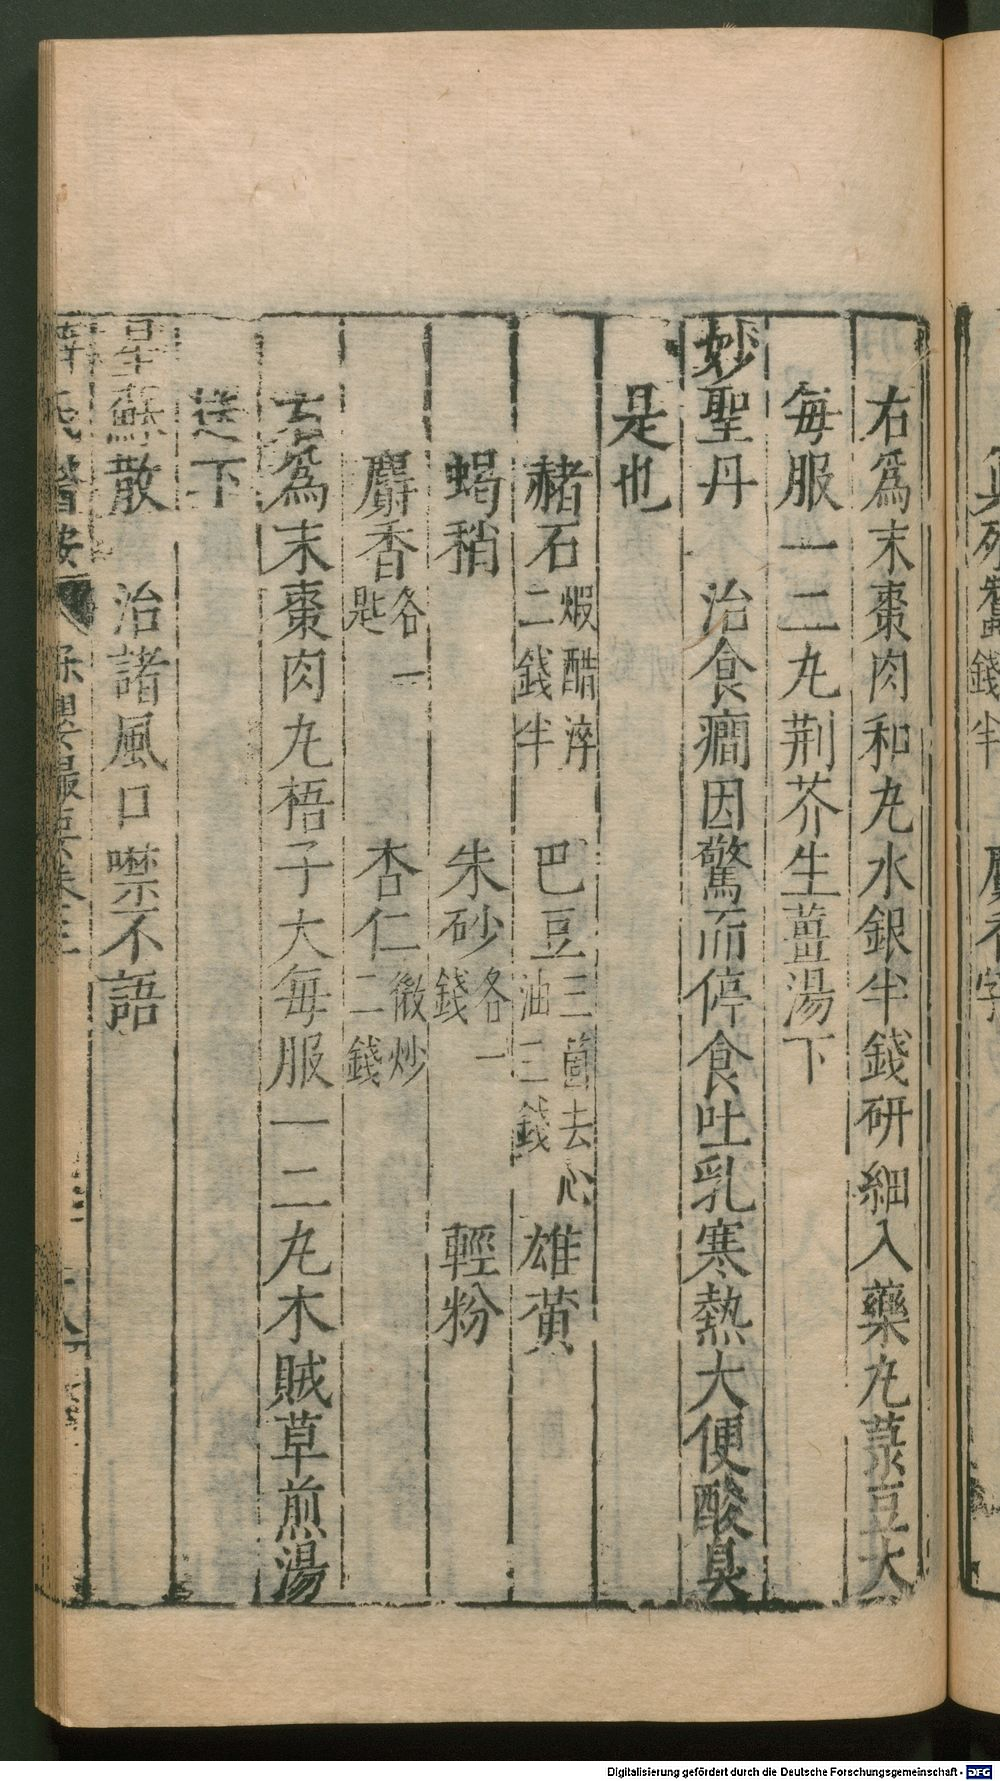 右爲末棗肉和丸水銀半錢研細入藥丸菉豆大
每服一二丸荆芥生薑湯下
妙聖丹 治食癇因驚而停食吐乳寒熱大便酸臭
是也
赭石煆醋淬二錢半 巴豆三箇去心油二錢 雄黄
蝎稍 朱砂各一錢 輕粉
麝香各一匙 杏仁微炒二錢
右爲末棗肉丸梧子大每服一二丸木賊草煎湯
送下
星蘇散 治諸風口噤不語
Digitalisierung gefördert durch die Deutsche Forschungsgemeinschaft - DFG